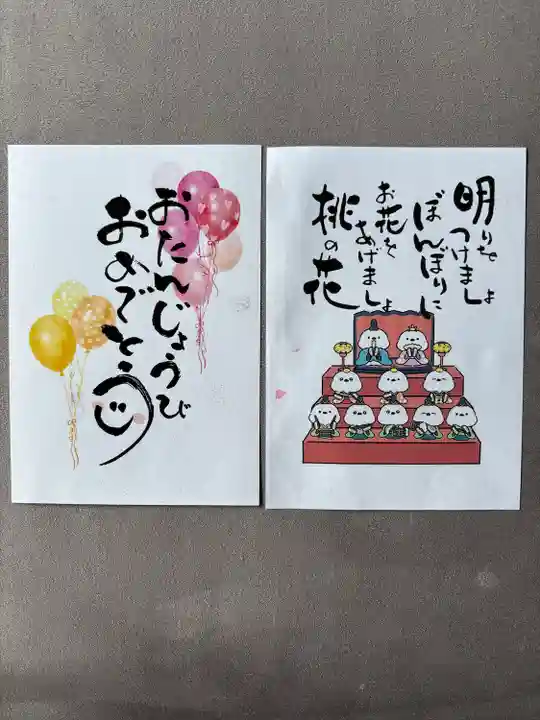 おたんじょうび
おめでとう
明りを
つけましょ
ぼんぼりに
お花を
あげましょ
桃の花